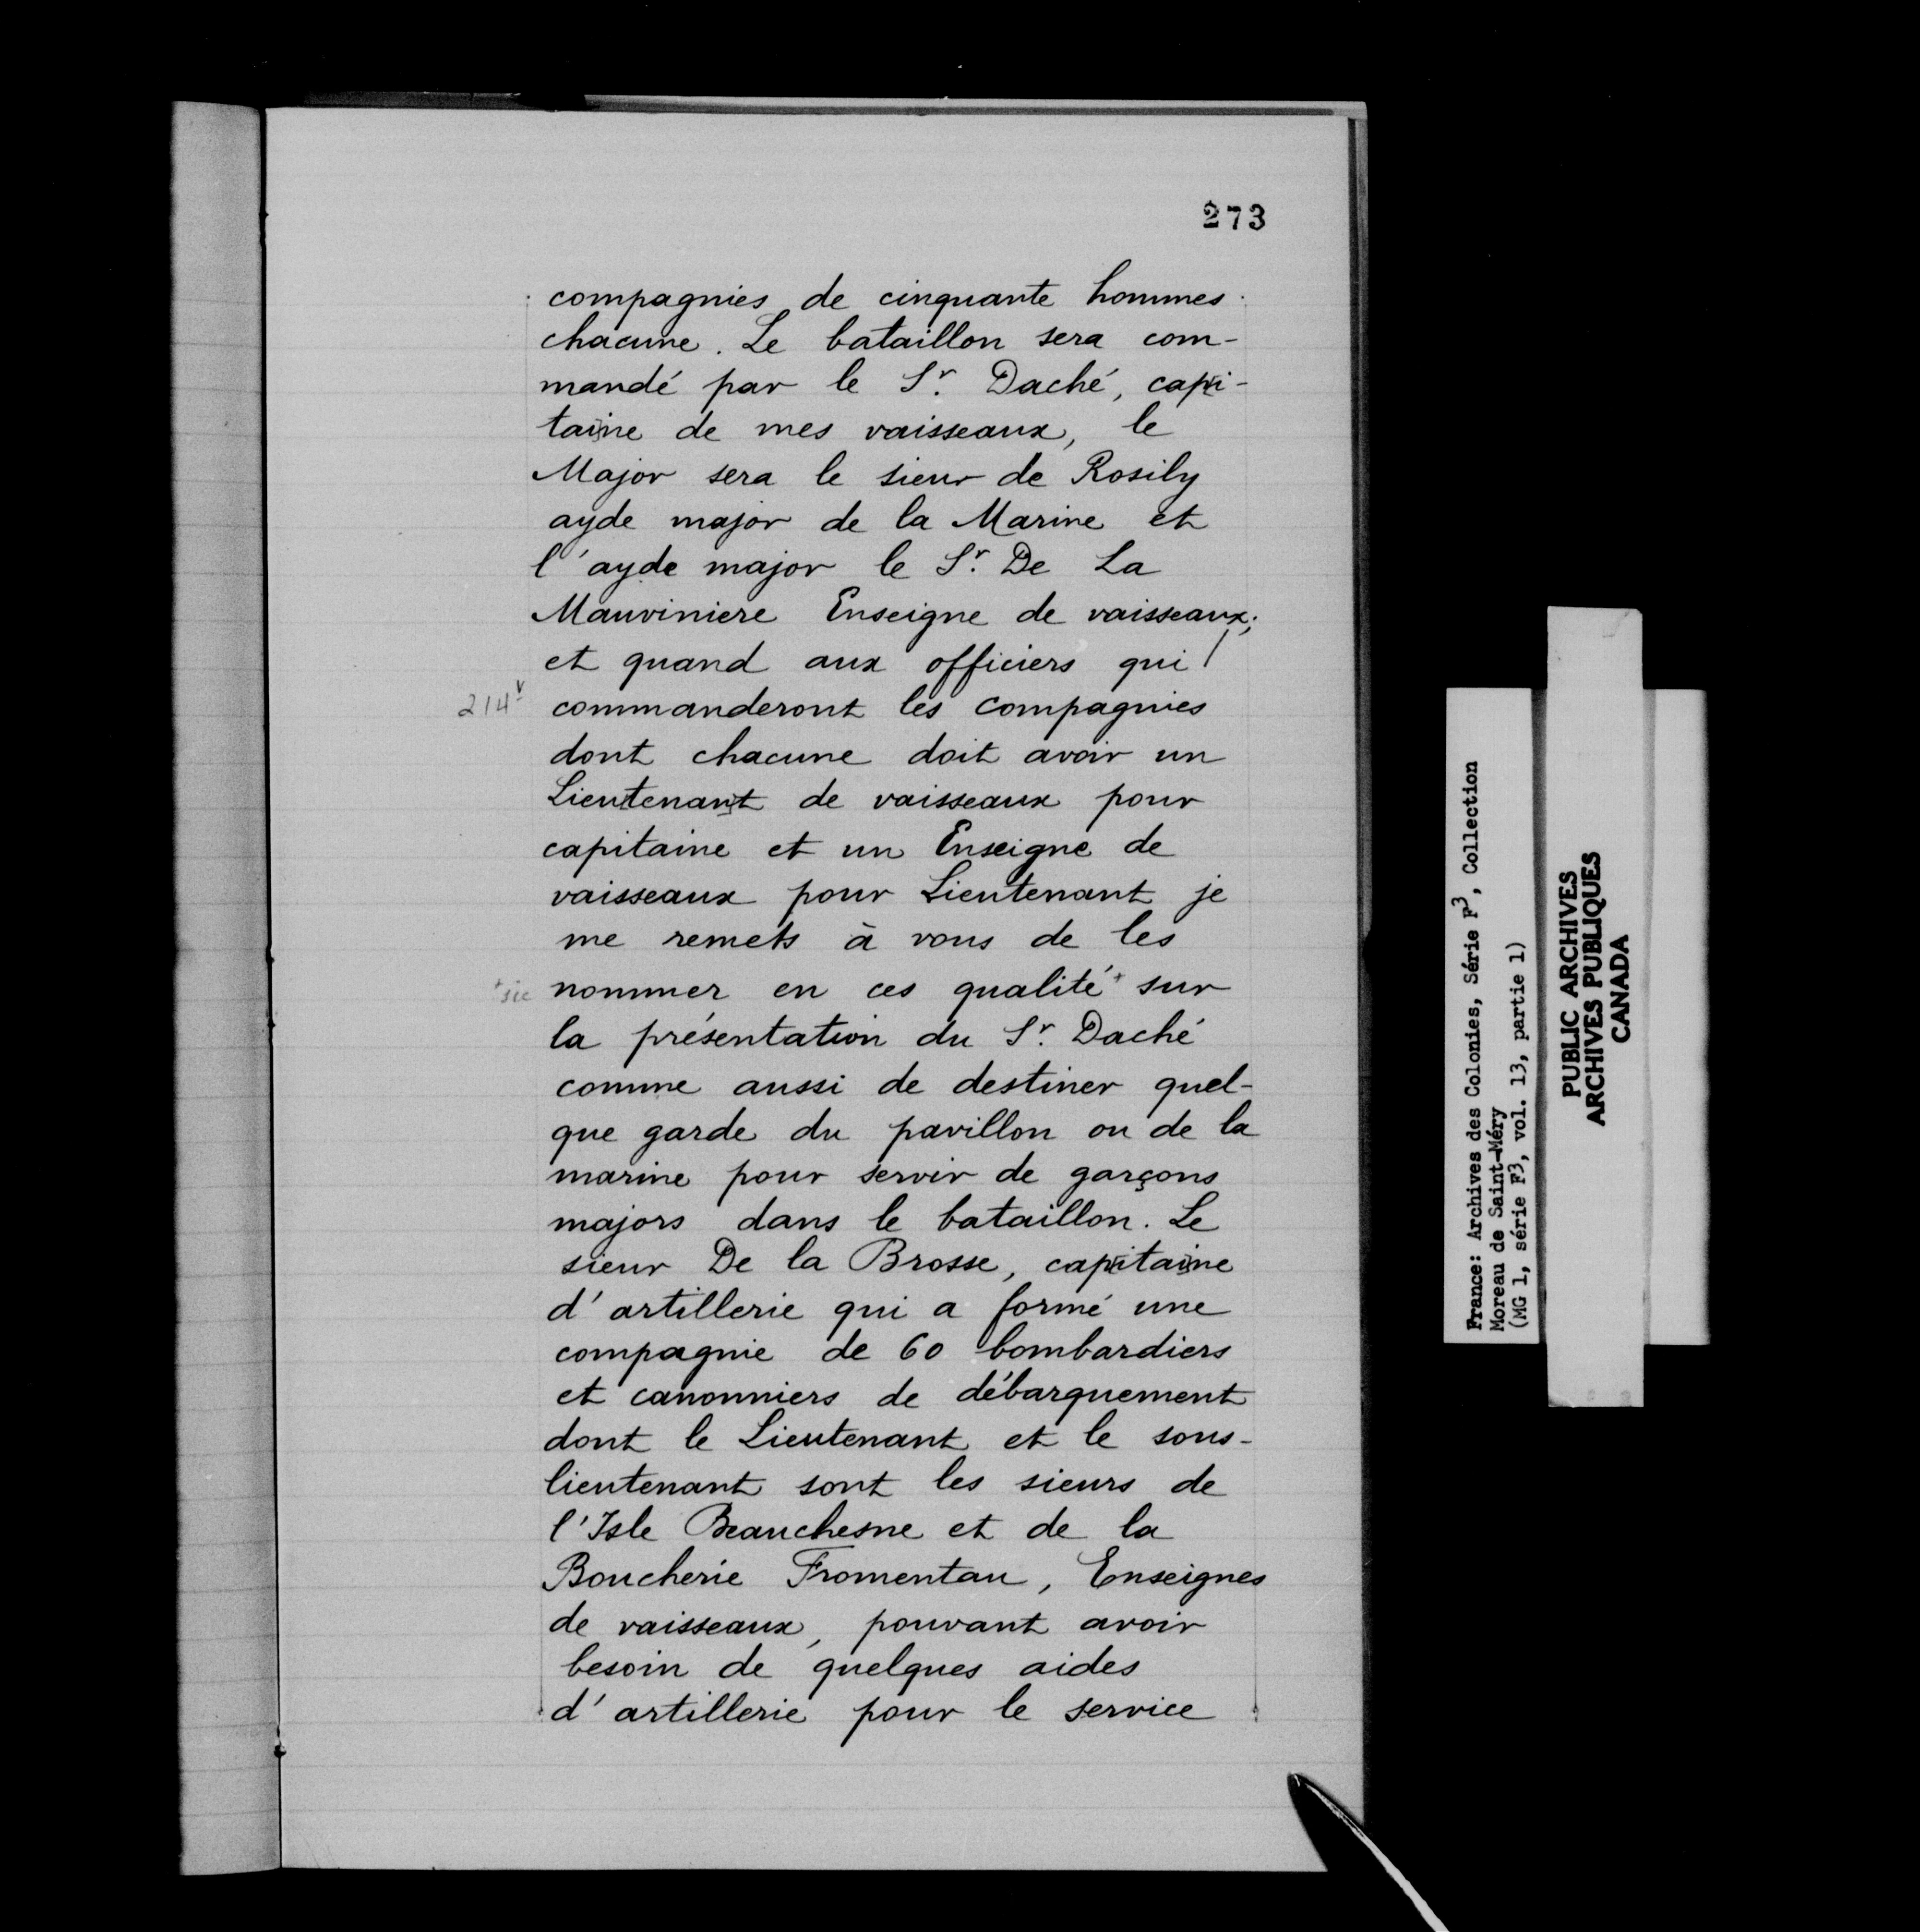 273
compagnies de cinquante hommes
chacune. Le bataillon sera com-
mandé par le Sr. Daché, capi-
taine de mes vaisseaux, le
Major sera le sieur de Rosily
ayde major de la Marine et
l'ayde major le Sr. De La
Mauviniere Enseigne de vaisseaux;
et quand aux officiers qui /
214v commanderont les compagnies
dont chacune doit avoir un
Lieutenant de vaisseaux pour
capitaine et un Enseigne de
vaisseaux pour Lieutenant je
me remets à vous de les
+sic nommer en ces qualité+ sur
la présentation du Sr. Daché
comme aussi de destiner quel-
que garde du pavillon ou de la
marine pour servir de garçons
majors dans le bataillon. Le
sieur De la Brosse, capitaine
d'artillerie qui a formé une
compagnie de 60 bombardiers
et canonniers de débarquement
dont le Lieutenant et le sous-
lieutenant sont les sieurs de
l'Isle Beauchesne et de la
Boucherie Fromentau, Enseignes
de vaisseaux, pouvant avoir
besoin de quelques aides
d'artillerie pour le service
France: Archives des Colonies, Série F3, Collection
Moreau de Saint-Méry
(MG 1, série F3, vol. 13, partie 1)
PUBLIC ARCHIVES
ARCHIVES PUBLIQUES
CANADA